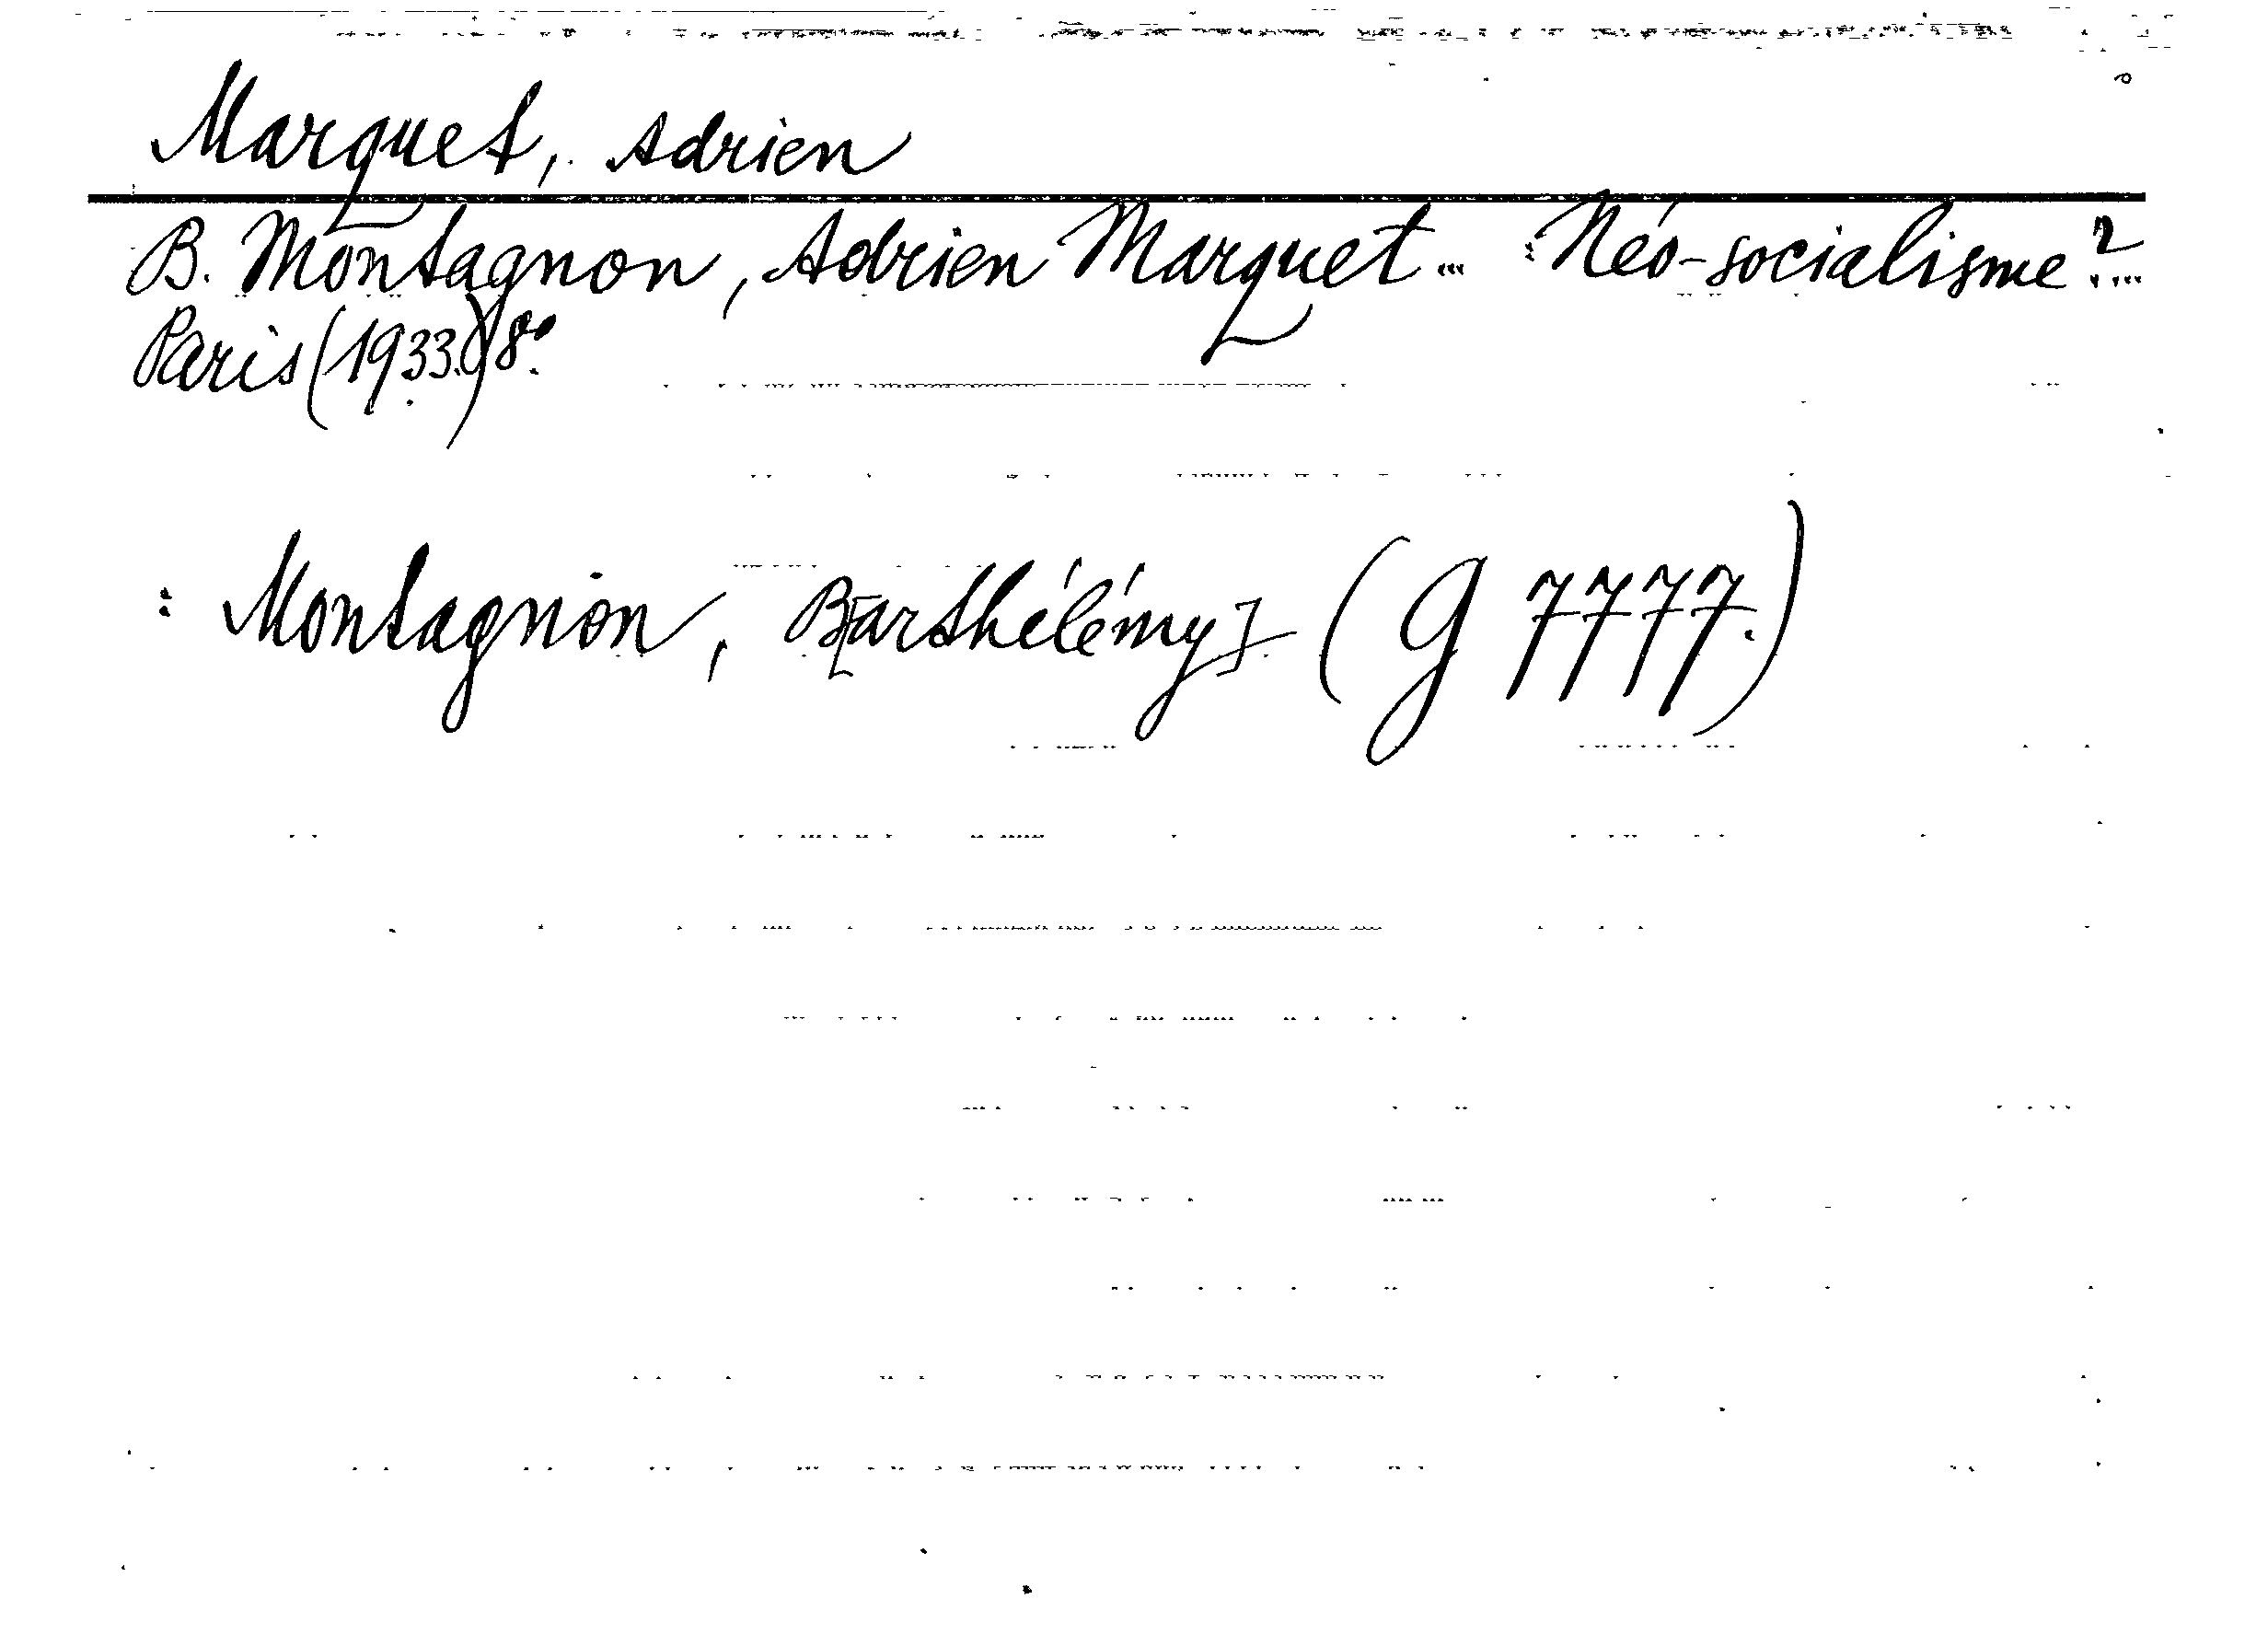 Marquet, Adrien
B. Montagnon, Adrien Marquet... : Néo-socialisme?...
Paris (1933.) 8°.
: Montagnon, B[arthélémy] (G 7777.)